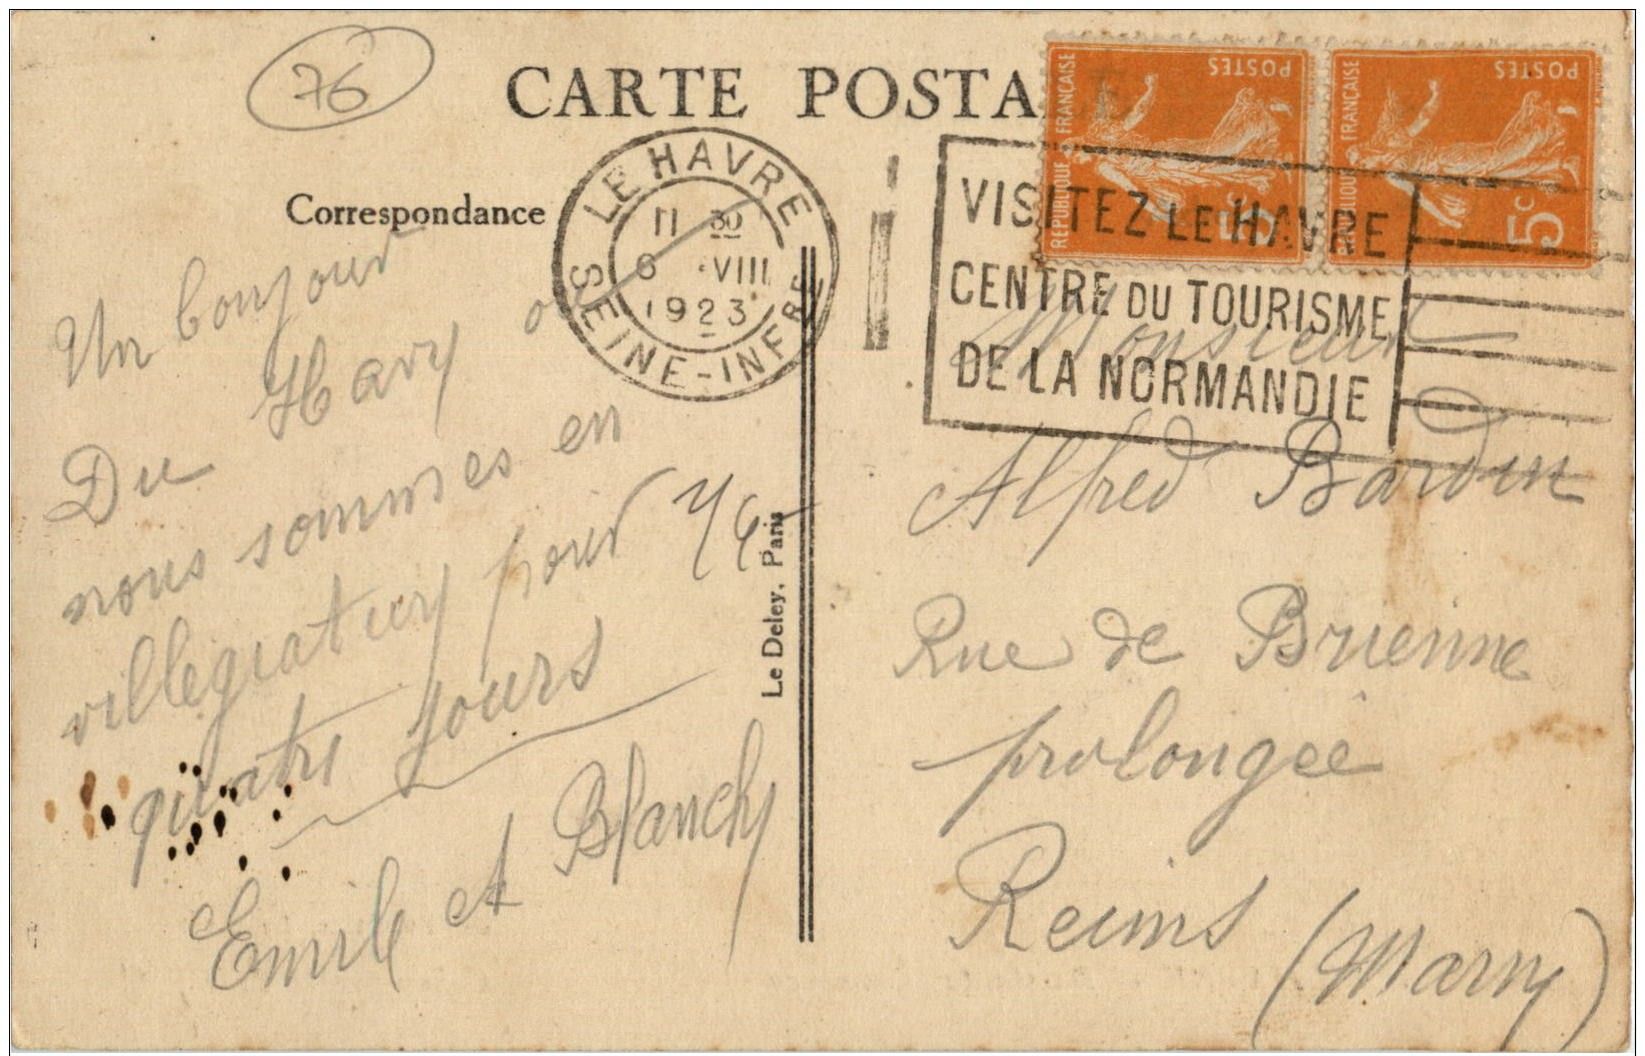 76
CARTE POSTA
Correspondance
LE HAVRE
11 30
6 VIII
1923
SEINE-INFRE
VISITEZ LE HAVRE
CENTRE DU TOURISME
DE LA NORMANDIE
POSTES
REPUBLIQUE FRANÇAISE
5c
POSTES
REPUBLIQUE FRANÇAISE
5c
Un bonjour
Du Havre ou
nous sommes en
villegiature pour
quatre jours
Emile et Blanche
Le Deley, Paris
Monsieur
Alfred Bardin
Rue de Brienne
prolongée
Reims
(Marne)